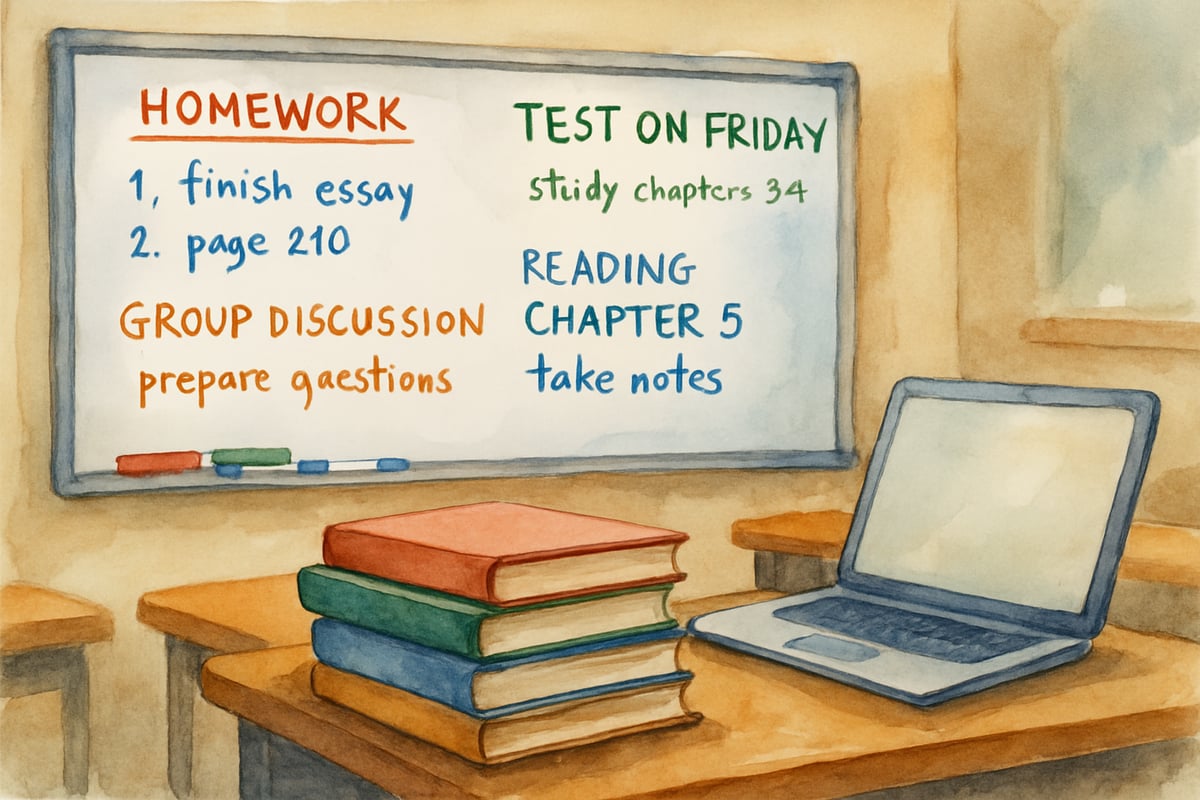 HOMEWORK
1, finish essay
2. page 210
GROUP DISCUSSION
prepare qaestions
TEST ON FRIDAY
stuidy chapters 34
READING
CHAPTER 5
take notes